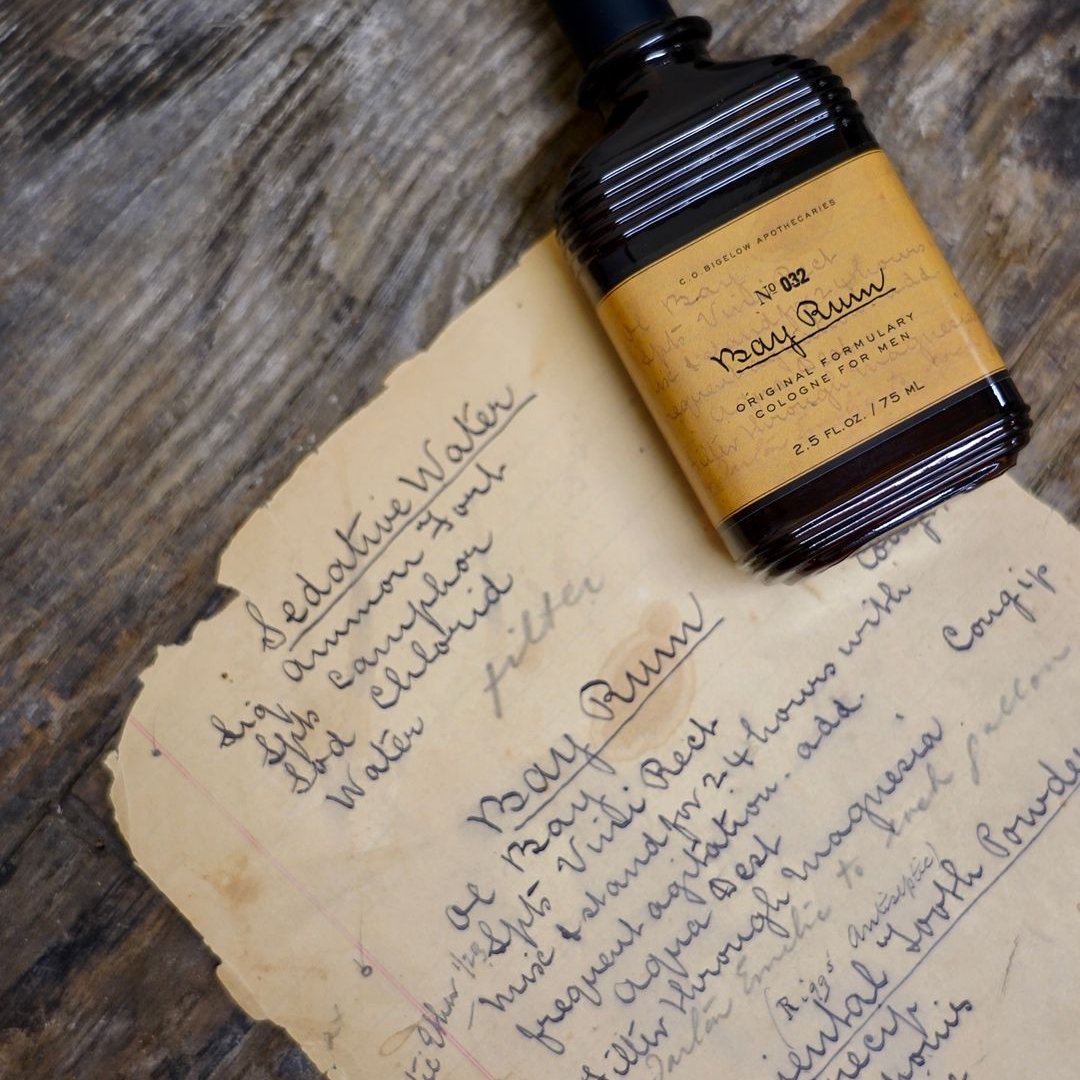 C.O. BIGELOW APOTHECARIES
No 032
Bay Rum
ORIGINAL FORMULARY
COLOGNE FOR MEN
2.5 FL.OZ. / 75 ML
Sedative Water
Liq ammon Fort
Spts Camphor
Sod Chlorid
Water
filter
Bay Rum
Ol Bay
Spts Vini Rect
Mix & stand for 24 hours with
frequent agitation. add
aqua Dest Congip
filter through magnesia
to each gallon
(Riggs Antiseptic)
Tooth Powder